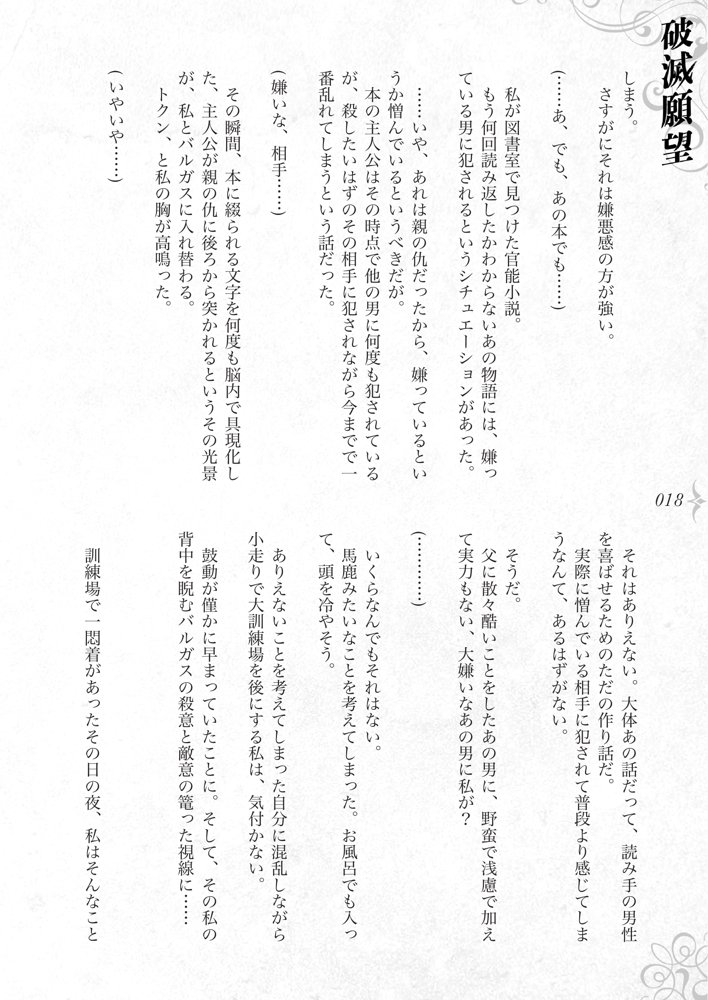 破滅願望
しまう。
さすがにそれは嫌悪感の方が強い。
(……あ、でも、あの本でも……)
私が図書室で見つけた官能小説。
もう何回読み返したかわからないあの物語には、嫌っ
ている男に犯されるというシチュエーションがあった。
……いや、あれは親の仇だったから、嫌っているとい
うか憎んでいるというべきだが。
本の主人公はその時点で他の男に何度も犯されている
が、殺したいはずのその相手に犯されながら今までで一
番乱れてしまうという話だった。
(嫌いな、相手……)
その瞬間、本に綴られる文字を何度も脳内で具現化し
た、主人公が親の仇に後ろから突かれるというその光景
が、私とバルガスに入れ替わる。
トクン、と私の胸が高鳴った。
(いやいや……)
それはありえない。大体あの話だって、読み手の男性
を喜ばせるためのただの作り話だ。
実際に憎んでいる相手に犯されて普段より感じてしま
うなんて、あるはずがない。
そうだ。
父に散々酷いことをしたあの男に、野蛮で浅慮で加え
て実力もない、大嫌いなあの男に私が?
(…………)
いくらなんでもそれはない。
馬鹿みたいなことを考えてしまった。お風呂でも入っ
て、頭を冷やそう。
ありえないことを考えてしまった自分に混乱しながら
小走りで大訓練場を後にする私は、気付かない。
鼓動が僅かに早まっていたことに。そして、その私の
背中を睨むバルガスの殺意と敵意の篭った視線に……
訓練場で一悶着があったその日の夜、私はそんなこと
018